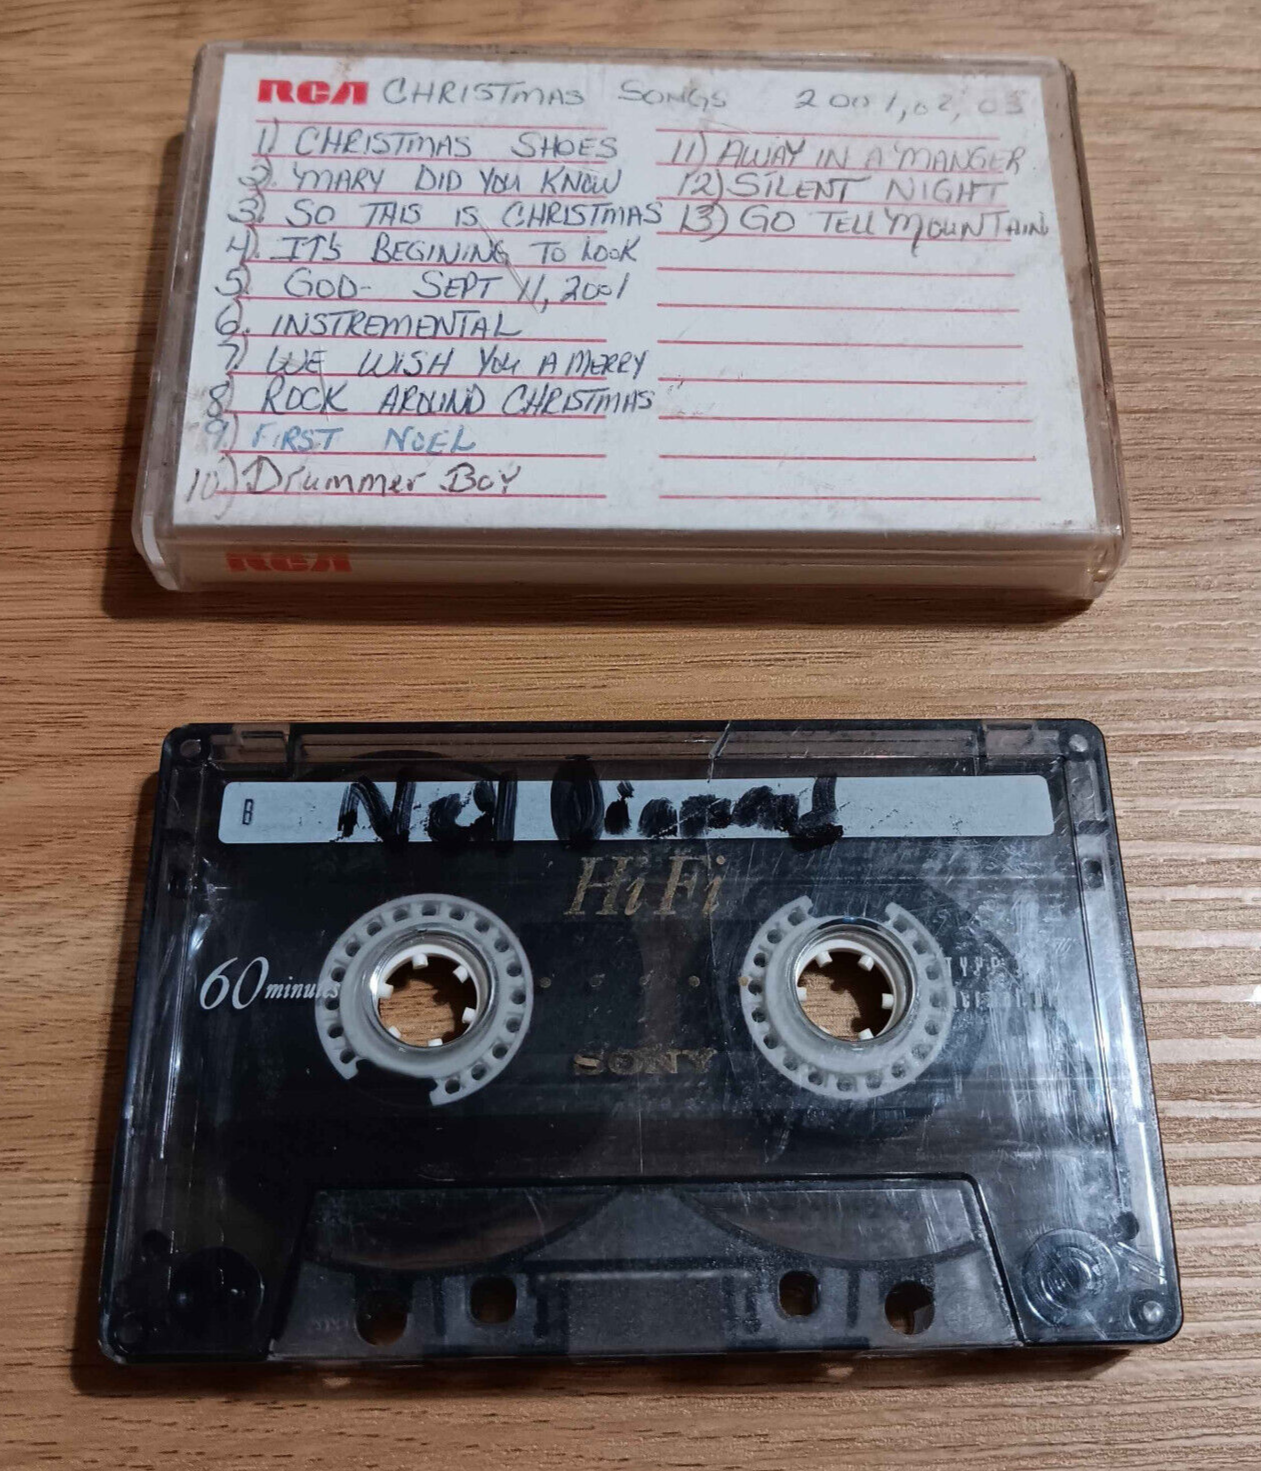 RCA CHRISTMAS SONGS 2001,02,03
1) CHRISTMAS SHOES
2) MARY DID YOU KNOW
3) SO THIS IS CHRISTMAS
4. IT'S BEGINING TO LOOK
5) GOD- SEPT 11, 2001
6. INSTREMENTAL
7) WE WISH YOU A MERRY
8) ROCK AROUND CHRISTMAS
9) FIRST NOEL
10) Drummer Boy
11) AWAY IN A MANGER
12) SILENT NIGHT
13) GO TELL MOUNTAIN
RCA
B Neil Diamond
HiFi
60 minutes
TYPE
SONY